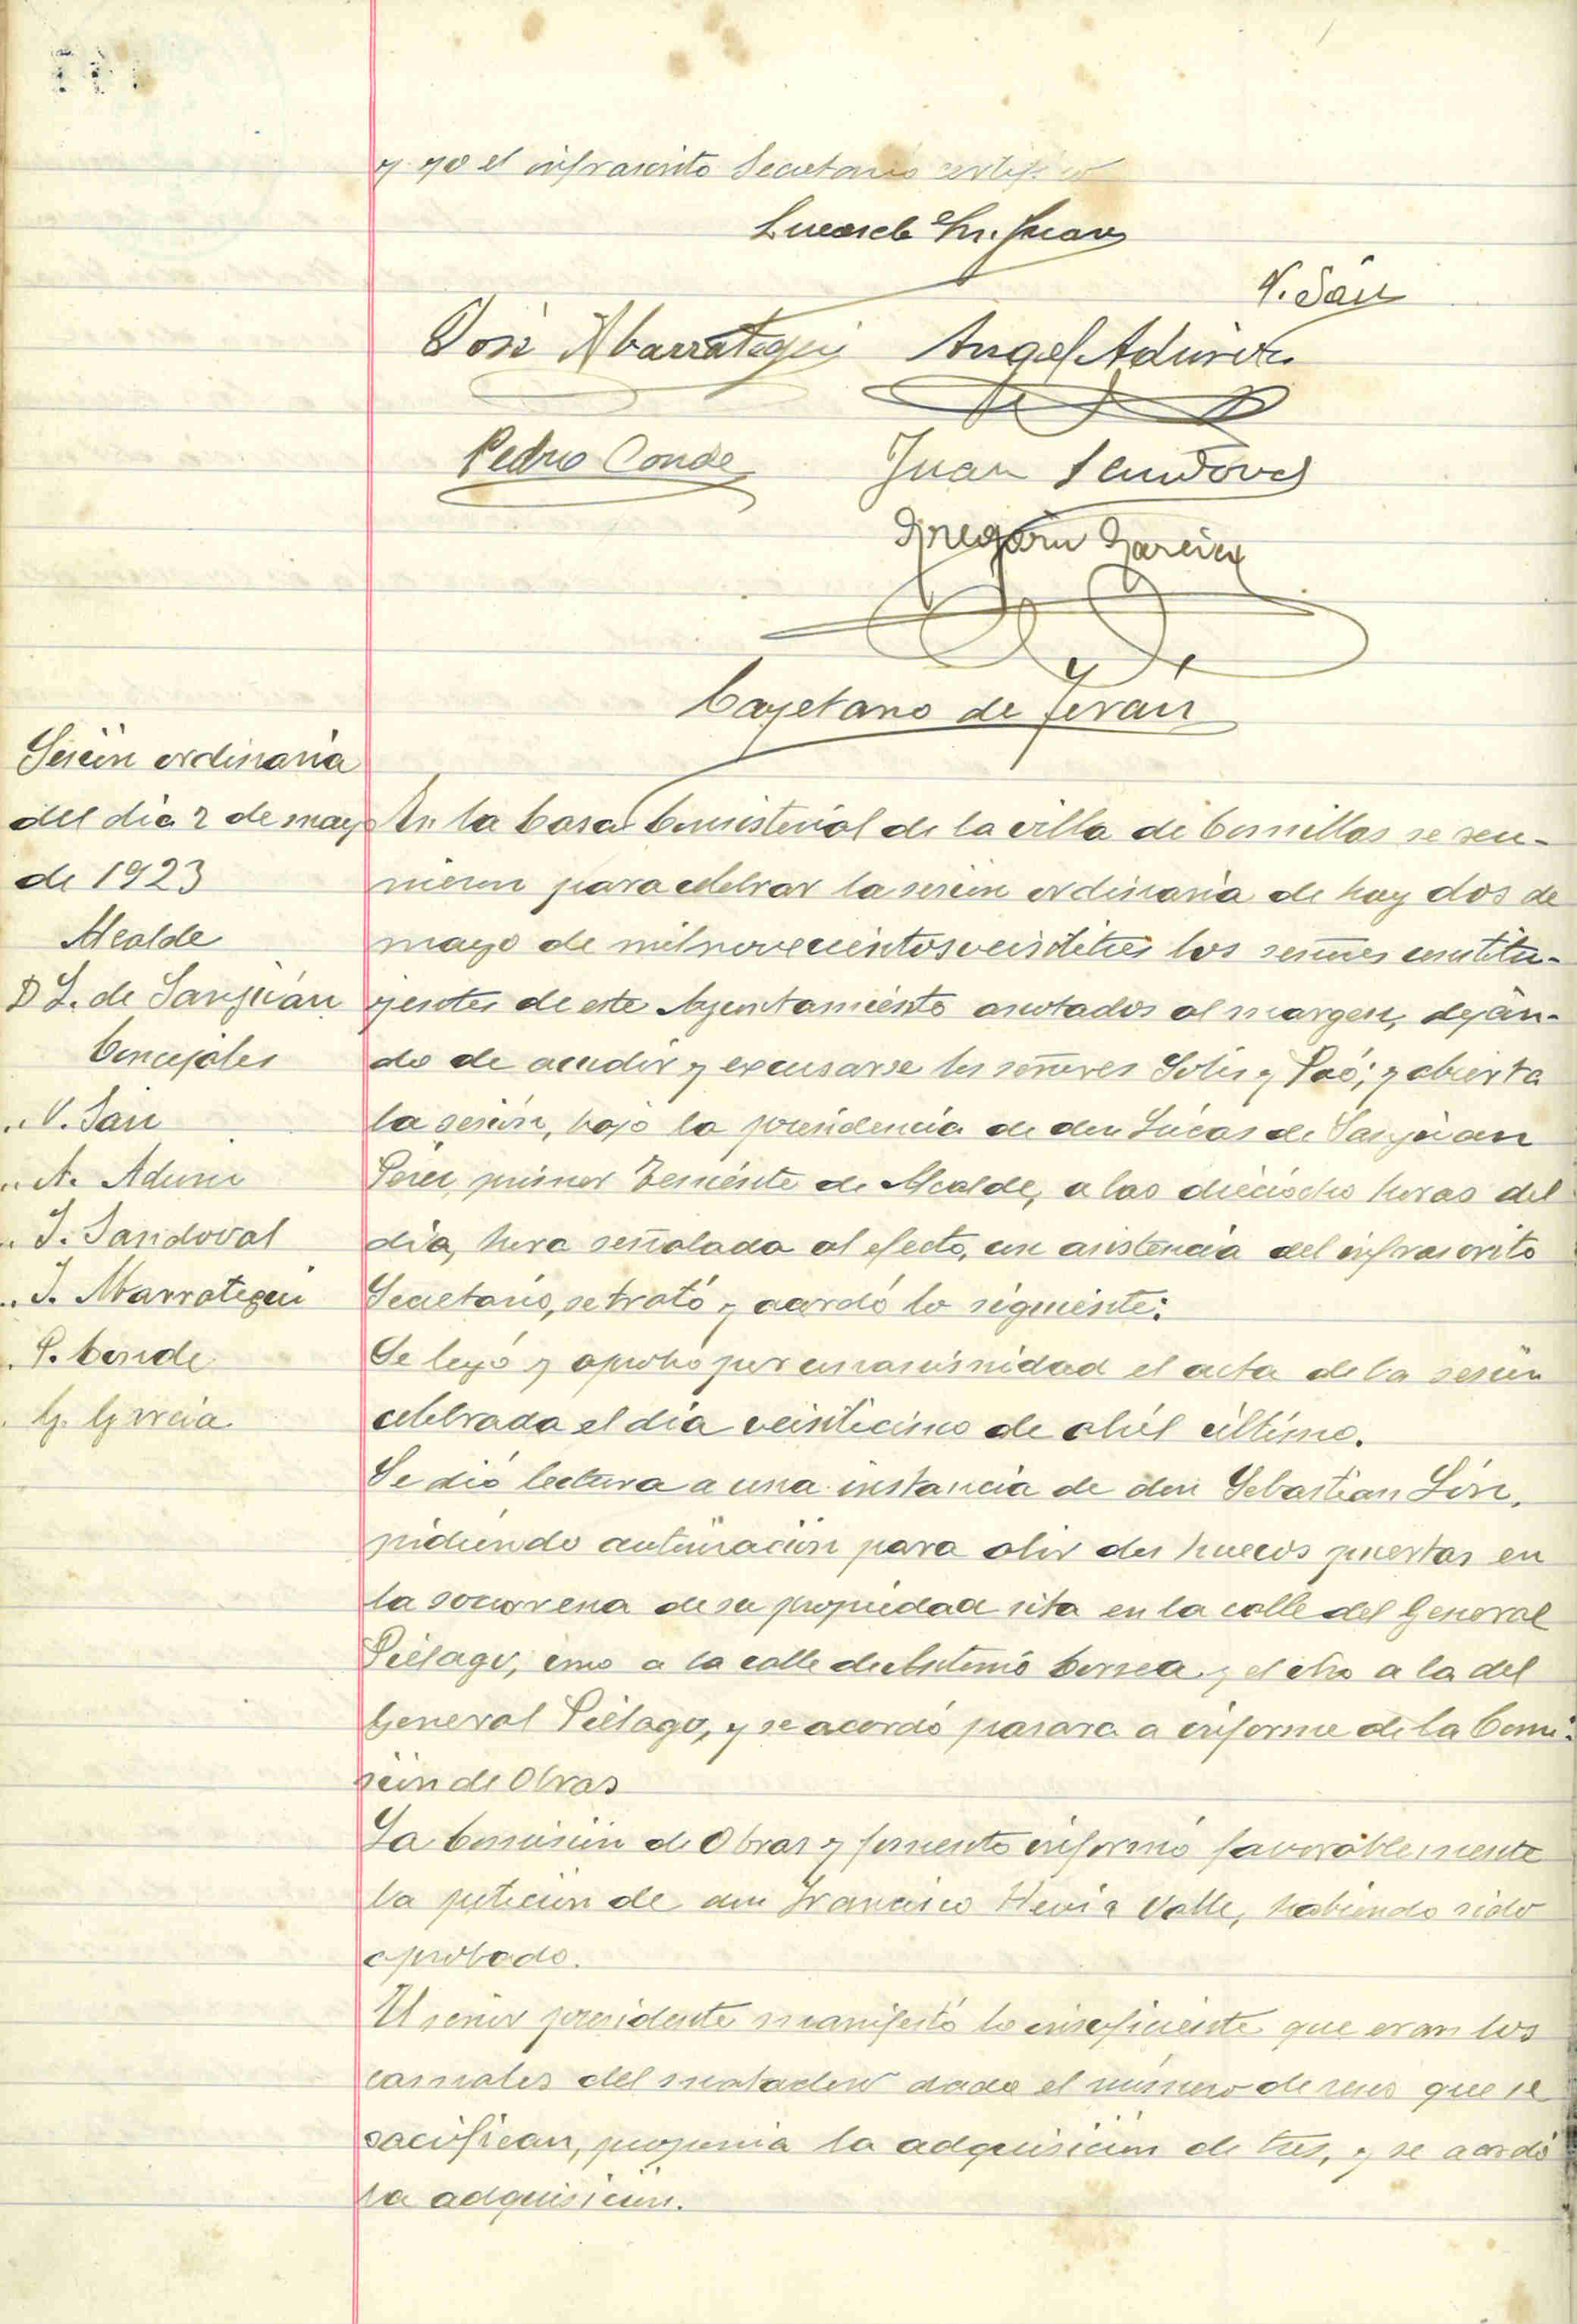 y yo el infrascrito Secretario certifico
Lucas de Sn. Juan
V. Sáiz
José Abarrategui Angel Aduriz
Pedro Conde Juan Sandoval
Gregorio García
Cayetano de Terán
Sesión ordinaria
del dia 2 de mayo
de 1923
Alcalde
D L. de Sanjuán
Concejales
" V. Saiz
" A. Aduriz
" J. Sandoval
" J. Abarrategui
" P. Conde
" G. García
En la Casa Consistorial de la villa de Comillas se reu-
nieron para celebrar la sesión ordinaria de hoy dos de
mayo de mil novecientos veintitrés los señores constitu-
yentes de este Ayuntamiento anotados al margen, deján-
do de acudir y excusarse los señores Solís y Poó; y abierta
la sesión, bajo la presidencia de don Lúcas de Sanjuán
Pérez, primer Teniente de Alcalde, a las dieciocho horas del
día, hora señalada al efecto, con asistencia del infrascrito
Secretario, se trató y acordó lo siguiente:
Se leyó y aprobó por unanimidad el acta de la sesión
celebrada el día veinticinco de abril último.
Se dió lectura a una instancia de don Sebastian
pidiendo autorización para abrir dos huecos puertas en
la socarrena de su propiedad sita en la calle del General
Piélago, uno a la calle de Antonio Correa y el otro a la del
General Piélago, y se acordó pasara a informe de la Comi-
sión de Obras
La Comisión de Obras y fomento informó favorablemente
la petición de don Francisco Hevia Valle, habiendo sido
aprobado.
El señor presidente manifestó lo insuficiente que eran los
camales del matadero dado el número de reses que se
sacrifican, proponía la adquisición de tres, y se acordó
la adquisición.